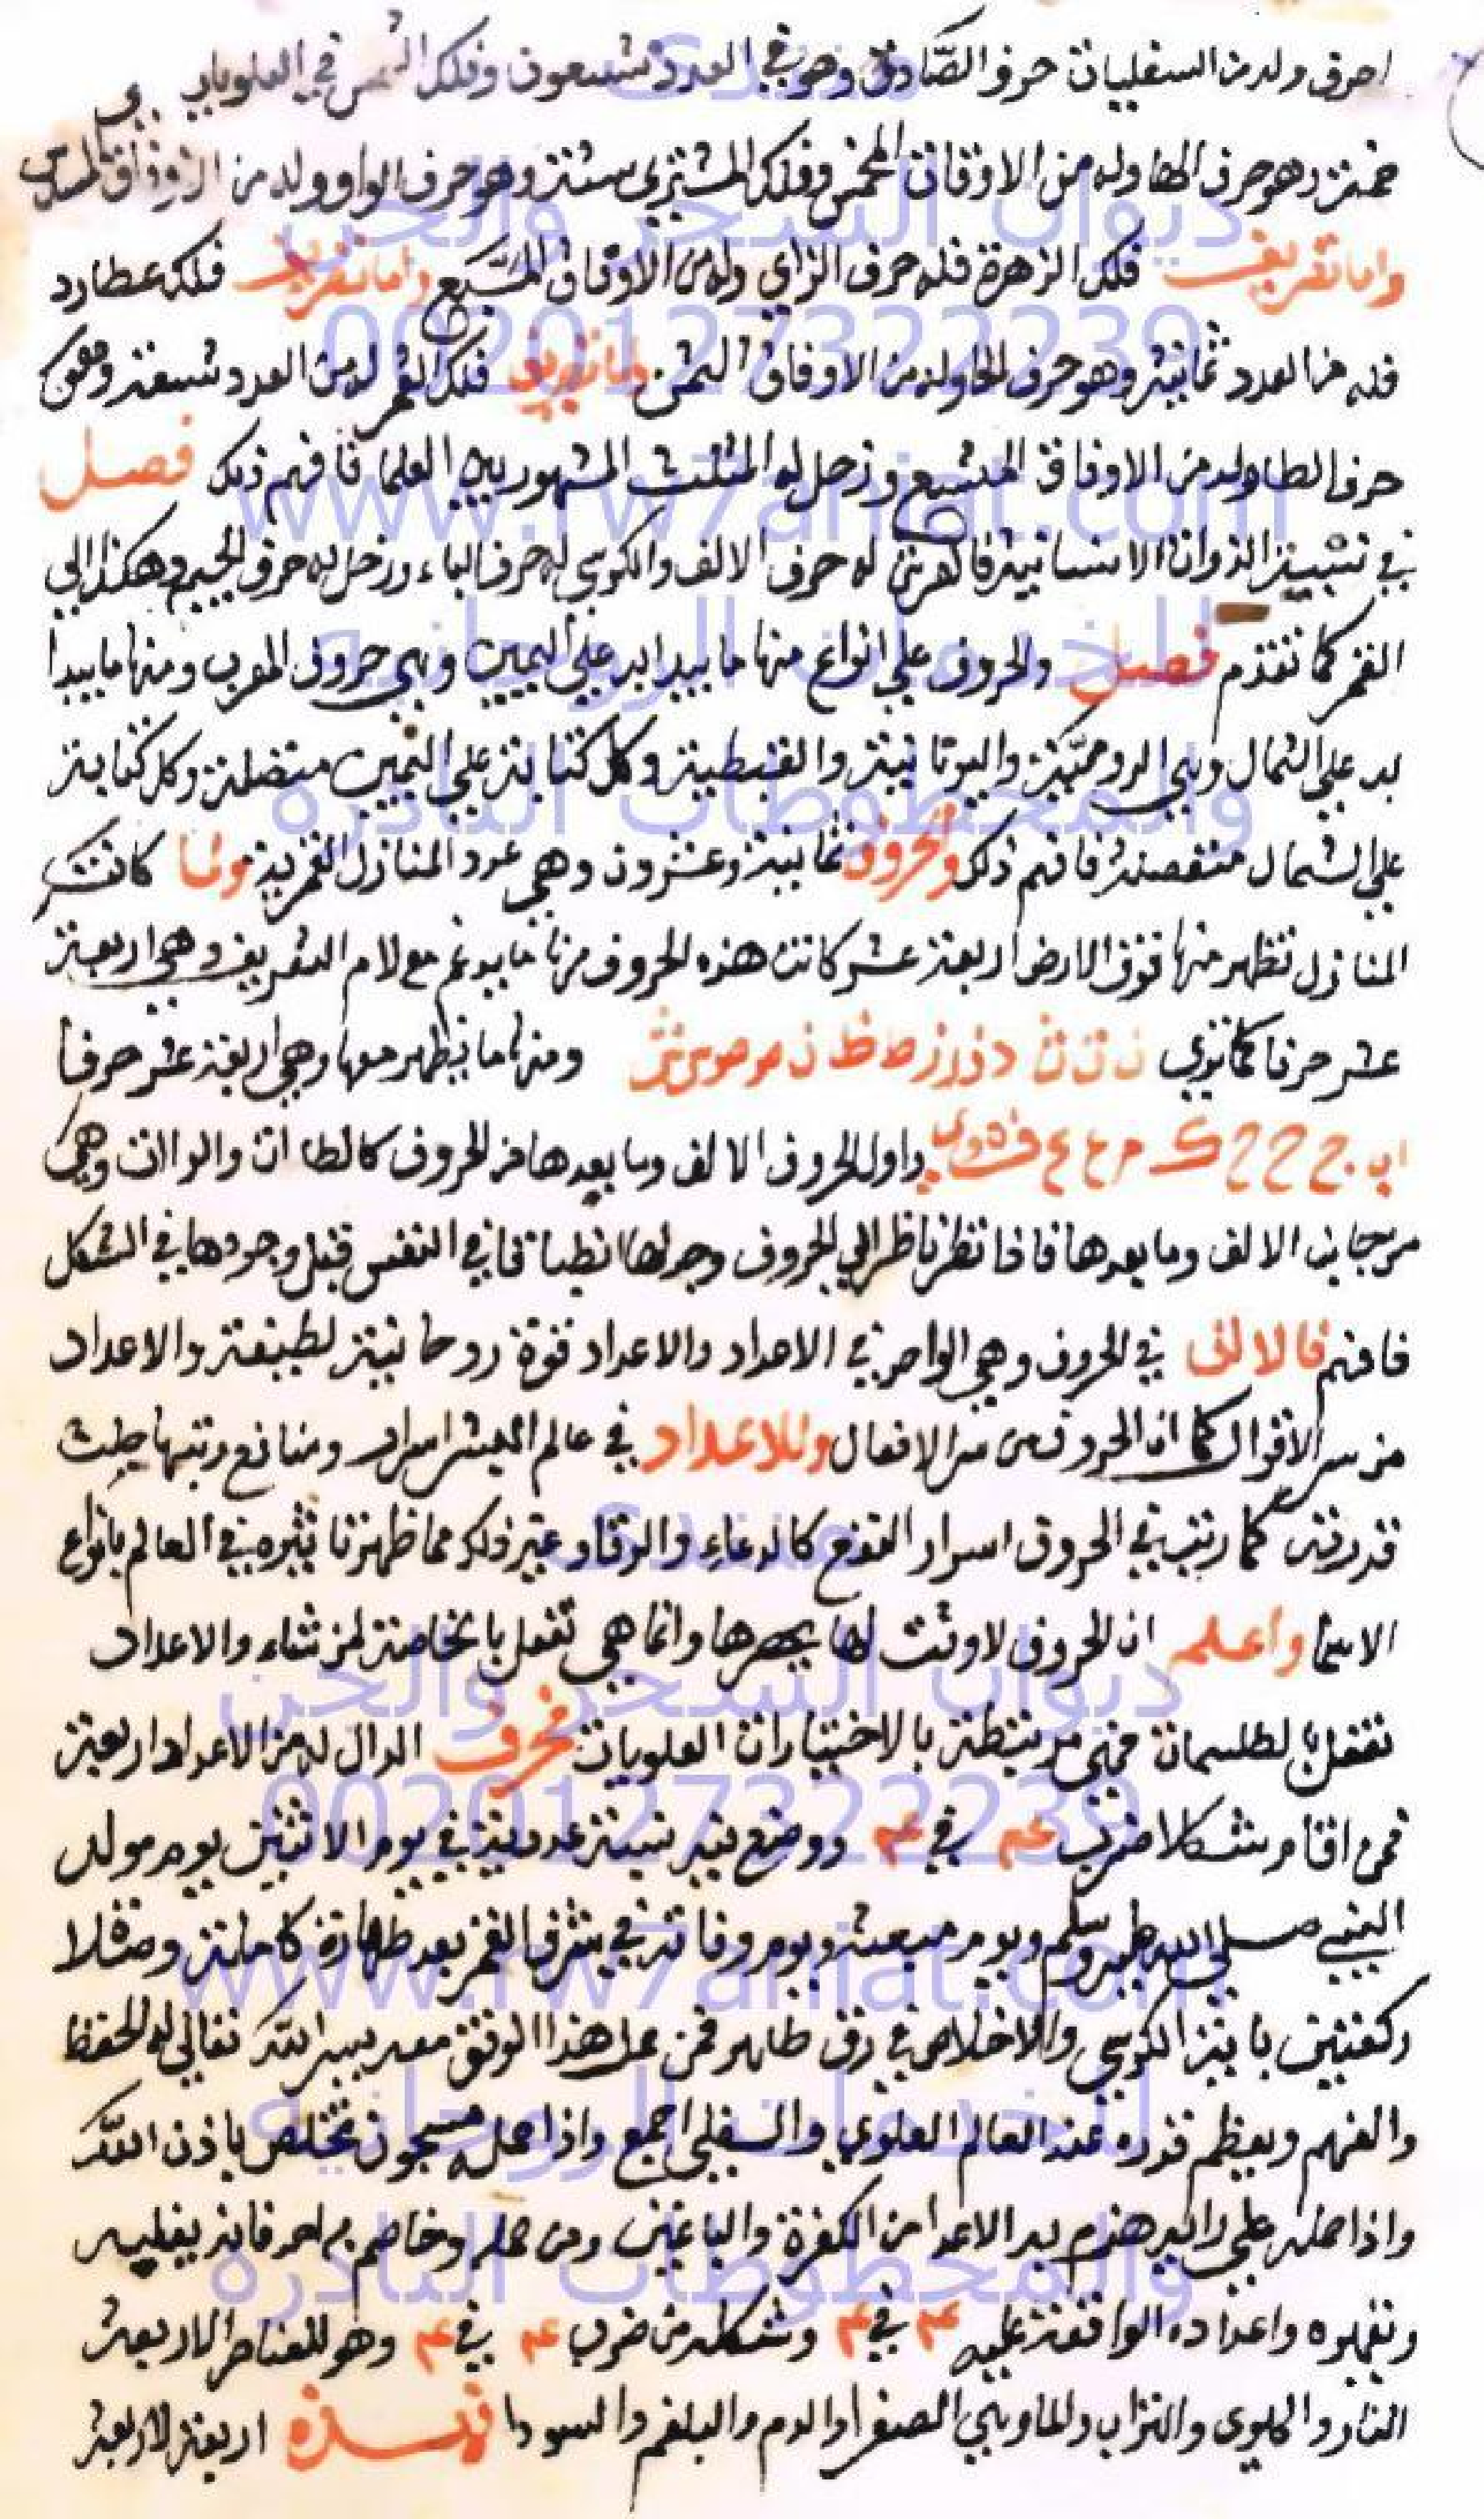 احرف وله من السفليات حرف الصاد وهو في العدد تسعون وفلك الشمس في العلويات
خمسة وهو حرف الها وله من الاوفاق المخمس وفلك المشتري ستة وهو حرف الواو وله من الاوفاق المسدس
واما تعريف فلك الزهرة فله حرف الزاي وله من الاوفاق المسبع واما تعريف فلك عطارد
فله من العدد ثمانية وهو حرف الحا وله من الاوفاق المثمن واما تعريف فلك القمر له من العدد تسعة وهو
حرف الطا وله من الاوفاق المتسع وزحل له المثلث المشهور بين العلما فافهم ذلك فصل
في نسبة الذوات الانسانية فالعرش له حرف الالف والكرسي له حرف الباء وزحل له حرف الجيم وهكذا الي
القمر كما تقدم فصل والحروف علي انواع منها ما يبدا به علي اليمين وهي حروف العرب ومنها ما يبدا
به علي الشمال وهي الرومية واليونانية والقبطية وكل كتابة علي اليمين متصلة وكل كتابة
علي الشمال منفصلة فافهم ذلك والحروف ثمانية وعشرون وهي عدد المنازل القمرية ولما كانت
المنازل تظهر منها فوق الارض اربعة عشر كانت هذه الحروف منها ما يدغم مع لام التعريف وهي اربعة
عشر حرفا كما تري ن ت ث د ذ ر ز ط ظ ن ص ض س ش ومنها ما يظهر معها وهي اربعة عشر حرفا
ا ب ج ح خ ك م ع غ ف ق ه و ي واول الحروف الالف وما بعدها من الحروف كالطاات والواات وهي
مرجان الالف وما بعدها فاذا نظر ناظر الي الحروف وجد لها انطباقا في النفس قبل وجودها في الشكل
فافهم فالالف في الحروف وهي الواحد في الاعداد والاعداد قوة روحانية لطيفة والاعداد
من سر الاقوال كما ان الحروف من سر الافعال وللاعداد في عالم البشر اسرار ومنافع رتبها حيث
قدرته كما رتب في الحروف اسرار النفع كالدعاء والرقا وغير ذلك مما ظهر تاثيره في العالم بانواع
الاسما واعلم ان الحروف لا وقت لها يحصرها وانما هي تفعل بالخاصة لمن شاء والاعداد
تفعل بالطلسمات فهي مرتبطة بالاختيارات العلويات فحرف الدال له من الاعداد اربعة
فمن اقام شكلا ضرب ٤ في ٤ ووضع فيه نسبة عددية في يوم الاثنين يوم مولد
النبي صلي الله عليه وسلم ويوم مبعثه ويوم وفاته في شرف القمر بعد طهارة كاملة وصلا
ركعتين باية الكرسي والاخلاص في رق طاهر فمن عمل هذا الوفق معه يسر الله تعالي له الحفظ
والفهم ويعظم قدره عند العالم العلوي والسفلي اجمع واذا حمله مسجون تخلص باذن الله
واذا حمله علي راية هزم به الاعدا من الكفرة والباغين ومن حمله وخاصم به احد فانه يغلبه
ويقهره واعداده الواقفة عليه ٤ في ٤ وشكله من ضرب ٤ في ٤ وهو للعناصر الاربعة
النار والهوي والتراب والما وهي الصفرا والدم والبلغم والسودا فهذه اربعة لاربعة